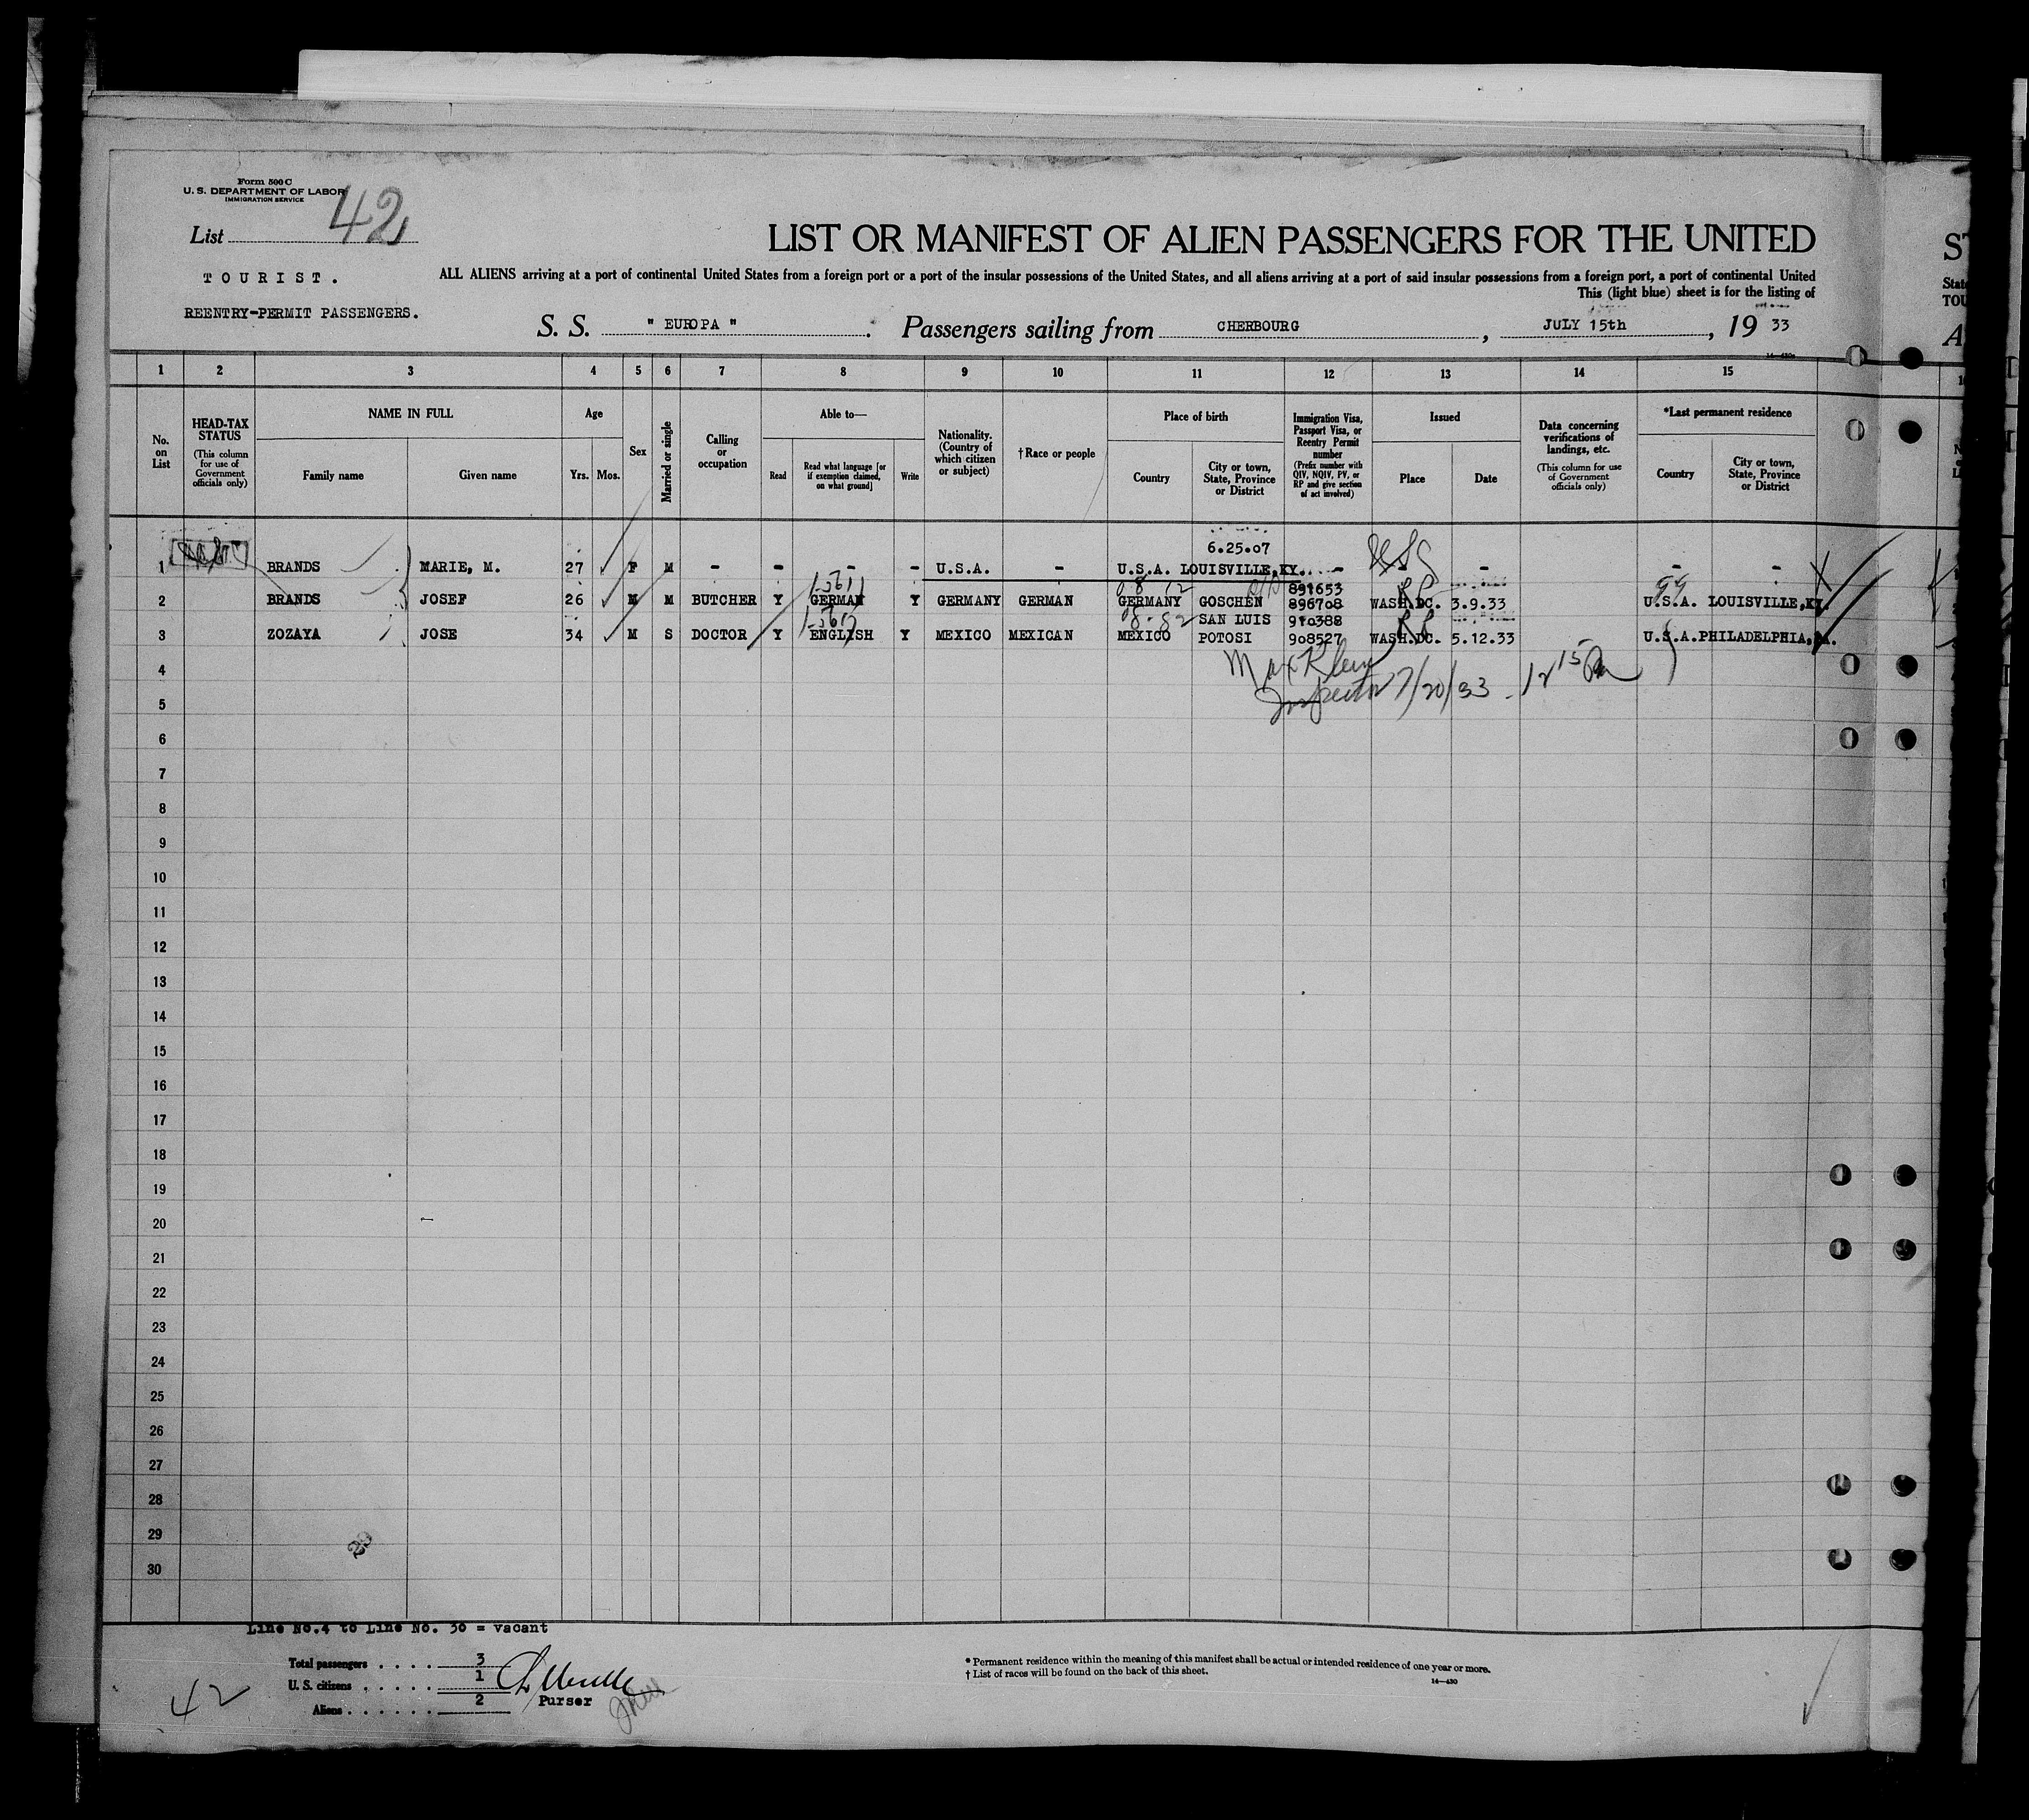 Form 500 C
U. S. DEPARTMENT OF LABOR
IMMIGRATION SERVICE
List 42
LIST OR MANIFEST OF ALIEN PASSENGERS FOR THE UNITED
TOURIST.
ALL ALIENS arriving at a port of continental United States from a foreign port or a port of the insular possessions of the United States, and all aliens arriving at a port of said insular possessions from a foreign port, a port of continental United
This (light blue) sheet is for the listing of
REENTRY-PERMIT PASSENGERS.
S. S. " EUROPA " Passengers sailing from CHERBOURG, JULY 15th, 19 33
1 2 3 4 5 6 7 8 9 10 11 12 13 14 15
No. on List
HEAD-TAX STATUS (This column for use of Government officials only)
NAME IN FULL
Family name
Given name
Age
Yrs. Mos.
Sex
Married or single
Calling or occupation
Able to—
Read
Read what language [or if exemption claimed, on what ground]
Write
Nationality. (Country of which citizen or subject)
† Race or people
Place of birth
Country
City or town, State, Province or District
Immigration Visa, Passport Visa, or Reentry Permit number (Prefix number with QIV, NQIV, PV, or RP and give section of act involved)
Issued
Place
Date
Data concerning verifications of landings, etc. (This column for use of Government officials only)
*Last permanent residence
Country
City or town, State, Province or District
6.25.07
1 BRANDS MARIE, M. 27 F M - - - - U.S.A. - U.S.A. LOUISVILLE,KY. - - - - -
891653
2 BRANDS JOSEF 26 M M BUTCHER Y GERMAN Y GERMANY GERMAN GERMANY GOSCHEN 896708 WASH.DC. 3.9.33 U.S.A. LOUISVILLE,KY.
SAN LUIS 910388
3 ZOZAYA JOSE 34 M S DOCTOR Y ENGLISH Y MEXICO MEXICAN MEXICO POTOSI 908527 WASH.DC. 5.12.33 U.S.A. PHILADELPHIA,PA.
4 Max Klein
5 Inspector 7/20/33
6
7
8
9
10
11
12
13
14
15
16
17
18
19
20
21
22
23
24
25
26
27
28
29
30
Line No.4 to Line No. 30 = vacant
Total passengers . . . . . 3
U. S. citizens . . . . . 1
Aliens . . . . . . 2
Purser
42
* Permanent residence within the meaning of this manifest shall be actual or intended residence of one year or more.
† List of races will be found on the back of this sheet.
14—430